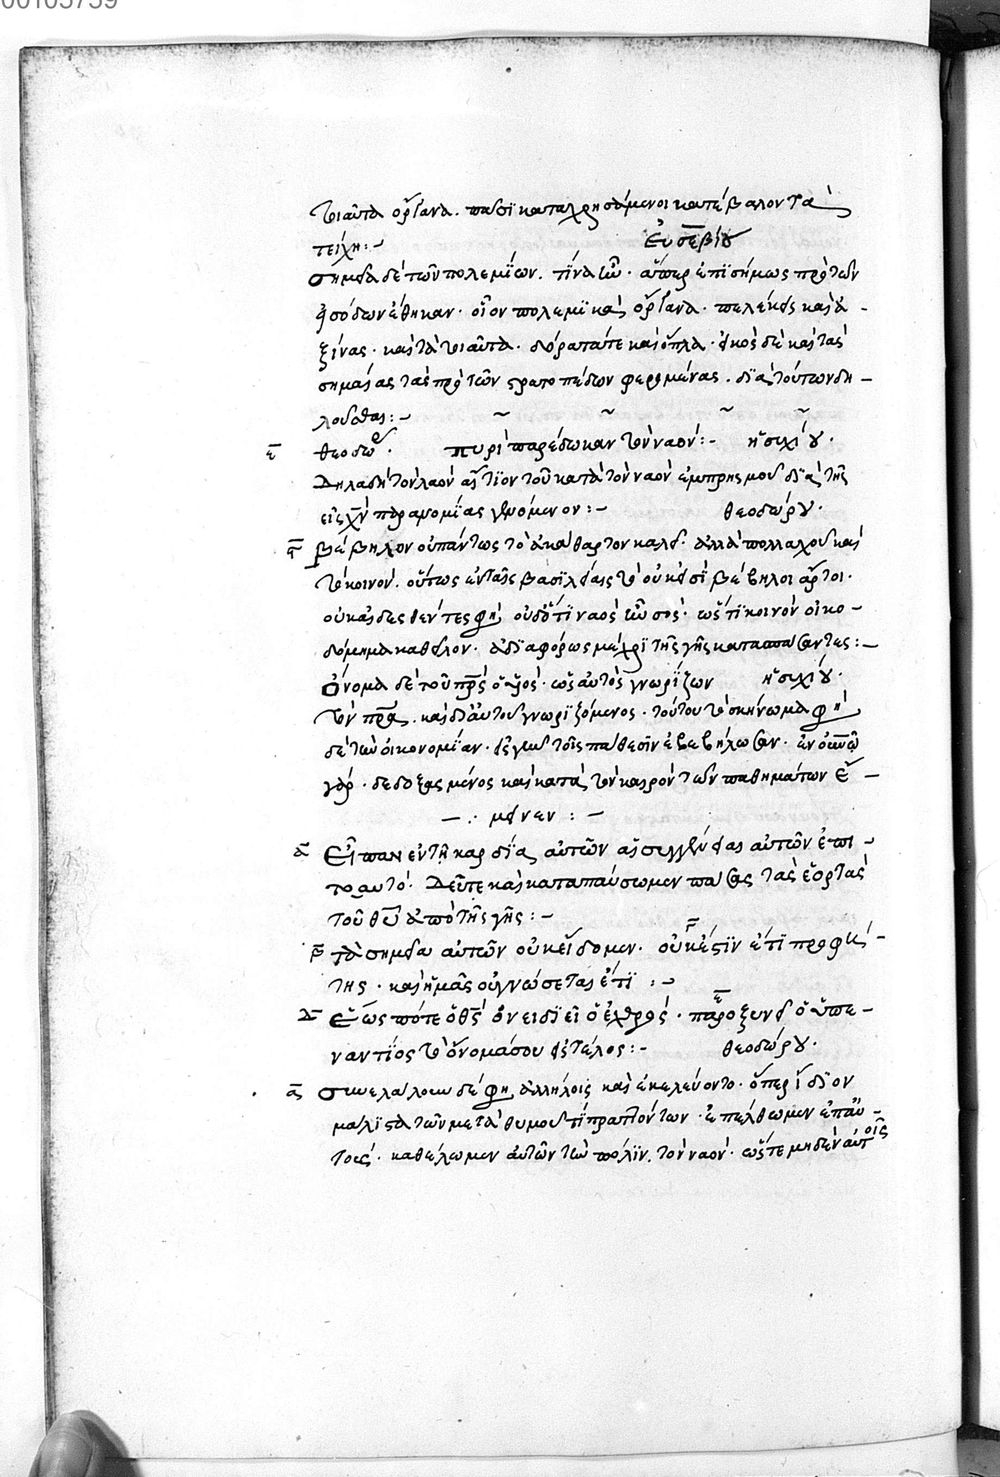 00105759
τοιαῦτα ὄργανα. πᾶσϊ καταχρησάμενοι κατέβαλον τὰ
τείχη:- Εὐσεβίου
σημεῖα δὲ τῶν πολεμΐων. τΐνα ἦν. ἅπερ ἐπϊσήμως πρὸ τῶν
εἰσόδων ἔθηκαν. οἷον πολεμϊκὰ ὄργανα. πελέκεις καὶ ἀ-
ξίνας. καὶ τὰ τοιαῦτα. δόρατά τε καὶ ὅπλα. εἰκὸς δὲ καὶ τὰς
σημαίας τὰς πρὸ τῶν στρατοπέδων φερομένας. δϊὰ τούτων δη-
λοῦσθαι:-
ε̅ θεοδώ. πυρὶ παρέδωκαν τὸν ναόν:- ἡσυχίου.
Δηλαδὴ τὸν λαὸν αἴτϊον τοῦ κατὰ τὸν ναὸν ἐμπρησμοῦ δϊὰ τῆς
εἰς χ̅ν παρανομΐας γενόμενον:- θεοδώρου.
α̅ βέβηλον οὐ πάντως τὸ ἀκάθαρτον καλεῖ. ἀλλὰ πολλαχοῦ καὶ
τὸ κοινόν. οὕτως ἐν ταῖς βασϊλείαις τὸ οὐκ εἰσὶ βέβηλοι ἄρτοι.
οὐκ αἰδεσθέντες φη, οὐδ' ὅτϊ ναὸς ἦν σος. ὥστϊ κοινὸν οἰκο-
δόμημα καθεῖλον. ἀδϊαφόρως μέχρϊ τῆς γῆς κατασπάσαντες:-
ὄνομα δὲ τοῦ πρ̅ς ὁ υ̅ς. ὡς αὐτὸς γνωρΐζων ἡσυχίου.
τὸν πρ̅α. καὶ δι' αὐτοῦ γνωρϊζόμενος. τούτου τὸ σκήνωμα φη
δὲ τὴν οἰκονομΐαν. ἐν τοῖς πάθεσϊν ἐβεβήλωσαν. ἐν
γὰρ. δεδοξασμένος καὶ κατὰ τὸν καιρὸν τῶν παθημάτων ἔ-
-.· μεινεν:-
Εἶπαν ἐν τῇ καρδΐᾳ αὐτῶν αἱ συγγένειαι αὐτῶν ἐπι-
τοαυτό. Δεῦτε καὶ καταπαύσωμεν πάσας τὰς ἑορτὰς
τοῦ θ̅υ ἀπὸ τῆς γῆς:-
β̅ τὰ σημεῖα αὐτῶν οὐκ εἴδομεν. οὐκ ἔστϊν ἔτϊ προφή-
της. καὶ ἡμᾶς οὐ γνώσεται ἔτϊ:-
Ἕως πότε ὁ θ̅ς ὀνειδϊεῖ ὁ ἐχθρός. παροξυνεῖ ὁ ὑπε-
ναντΐος τὸ ὄνομά σου εἰς τέλος:- θεοδώρου.
α̅ συνελάλουν δέ φη, ἀλλήλοις καὶ ἐκελεύοντο. ὅπερ ἴδϊον
μάλϊστα τῶν μετὰ θυμοῦ τϊ πραττόντων. ἐπέλθωμεν ἐπ' αὐ-
τούς. καθέλωμεν αὐτῶν τὴν πόλϊν. τὸν ναόν. ὥστε μηδὲν αὐτοῖς